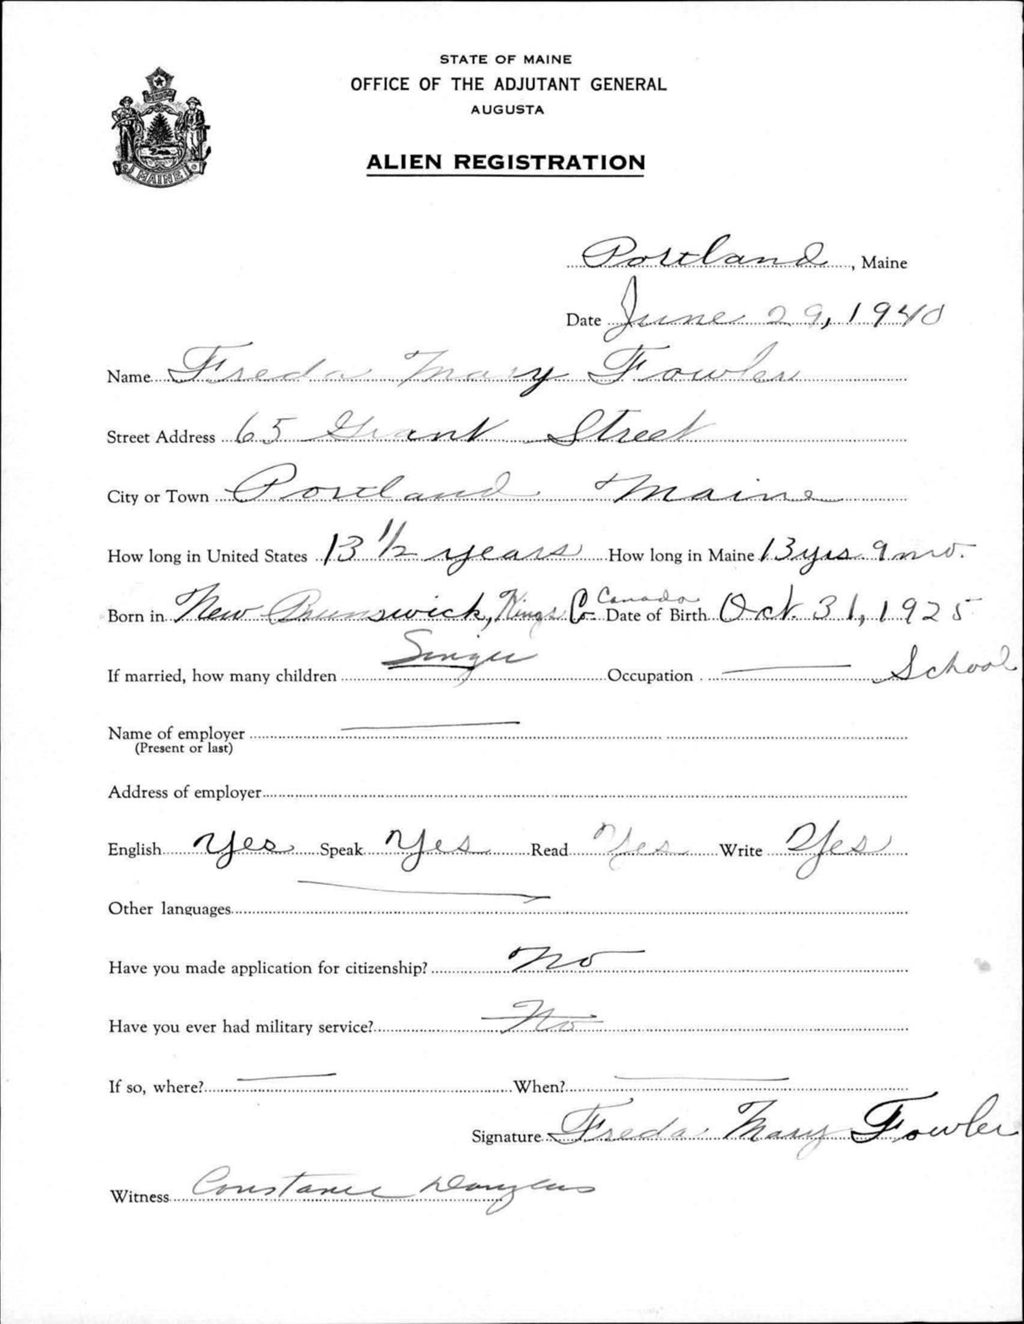 STATE OF MAINE
OFFICE OF THE ADJUTANT GENERAL
AUGUSTA
ALIEN REGISTRATION
MAINE
Portland, Maine
Date June 29, 1940
Name Freda Mary Fowler
Street Address 65 Grant Street
City or Town Portland Maine
How long in United States 13 1/2 years How long in Maine 13 yrs 9 mo.
Born in New Brunswick, Kings Co Canada Date of Birth Oct. 31, 1925
If married, how many children Single Occupation School
Name of employer
(Present or last)
Address of employer
English Yes Speak Yes Read Yes Write Yes
Other languages
Have you made application for citizenship? No
Have you ever had military service? No
If so, where? When?
Signature Freda Mary Fowler
Witness Constance Douglass